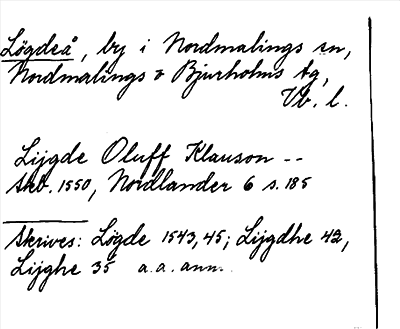 Lögdeå, by i Nordmalings sn,
Nordmalings o Bjurholms tg,
Vb. l.
Lijgde Oluff Klauson --
Skb. 1550, Nordlander 6 s. 185
Skrives: Lögde 1543, 45; Lijgdhe 42,
Lijghe 35 a.a. ann.